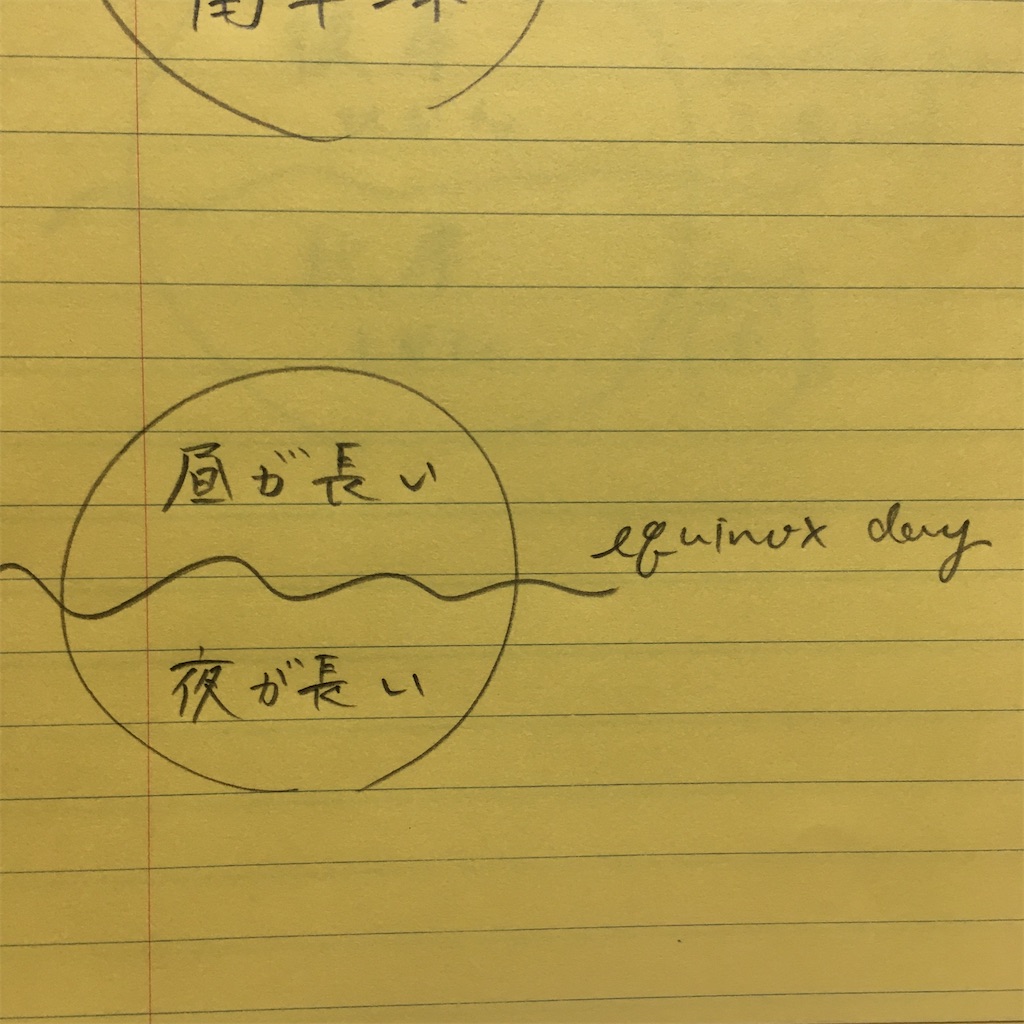 南半球
昼が長い
equinox day
夜が長い